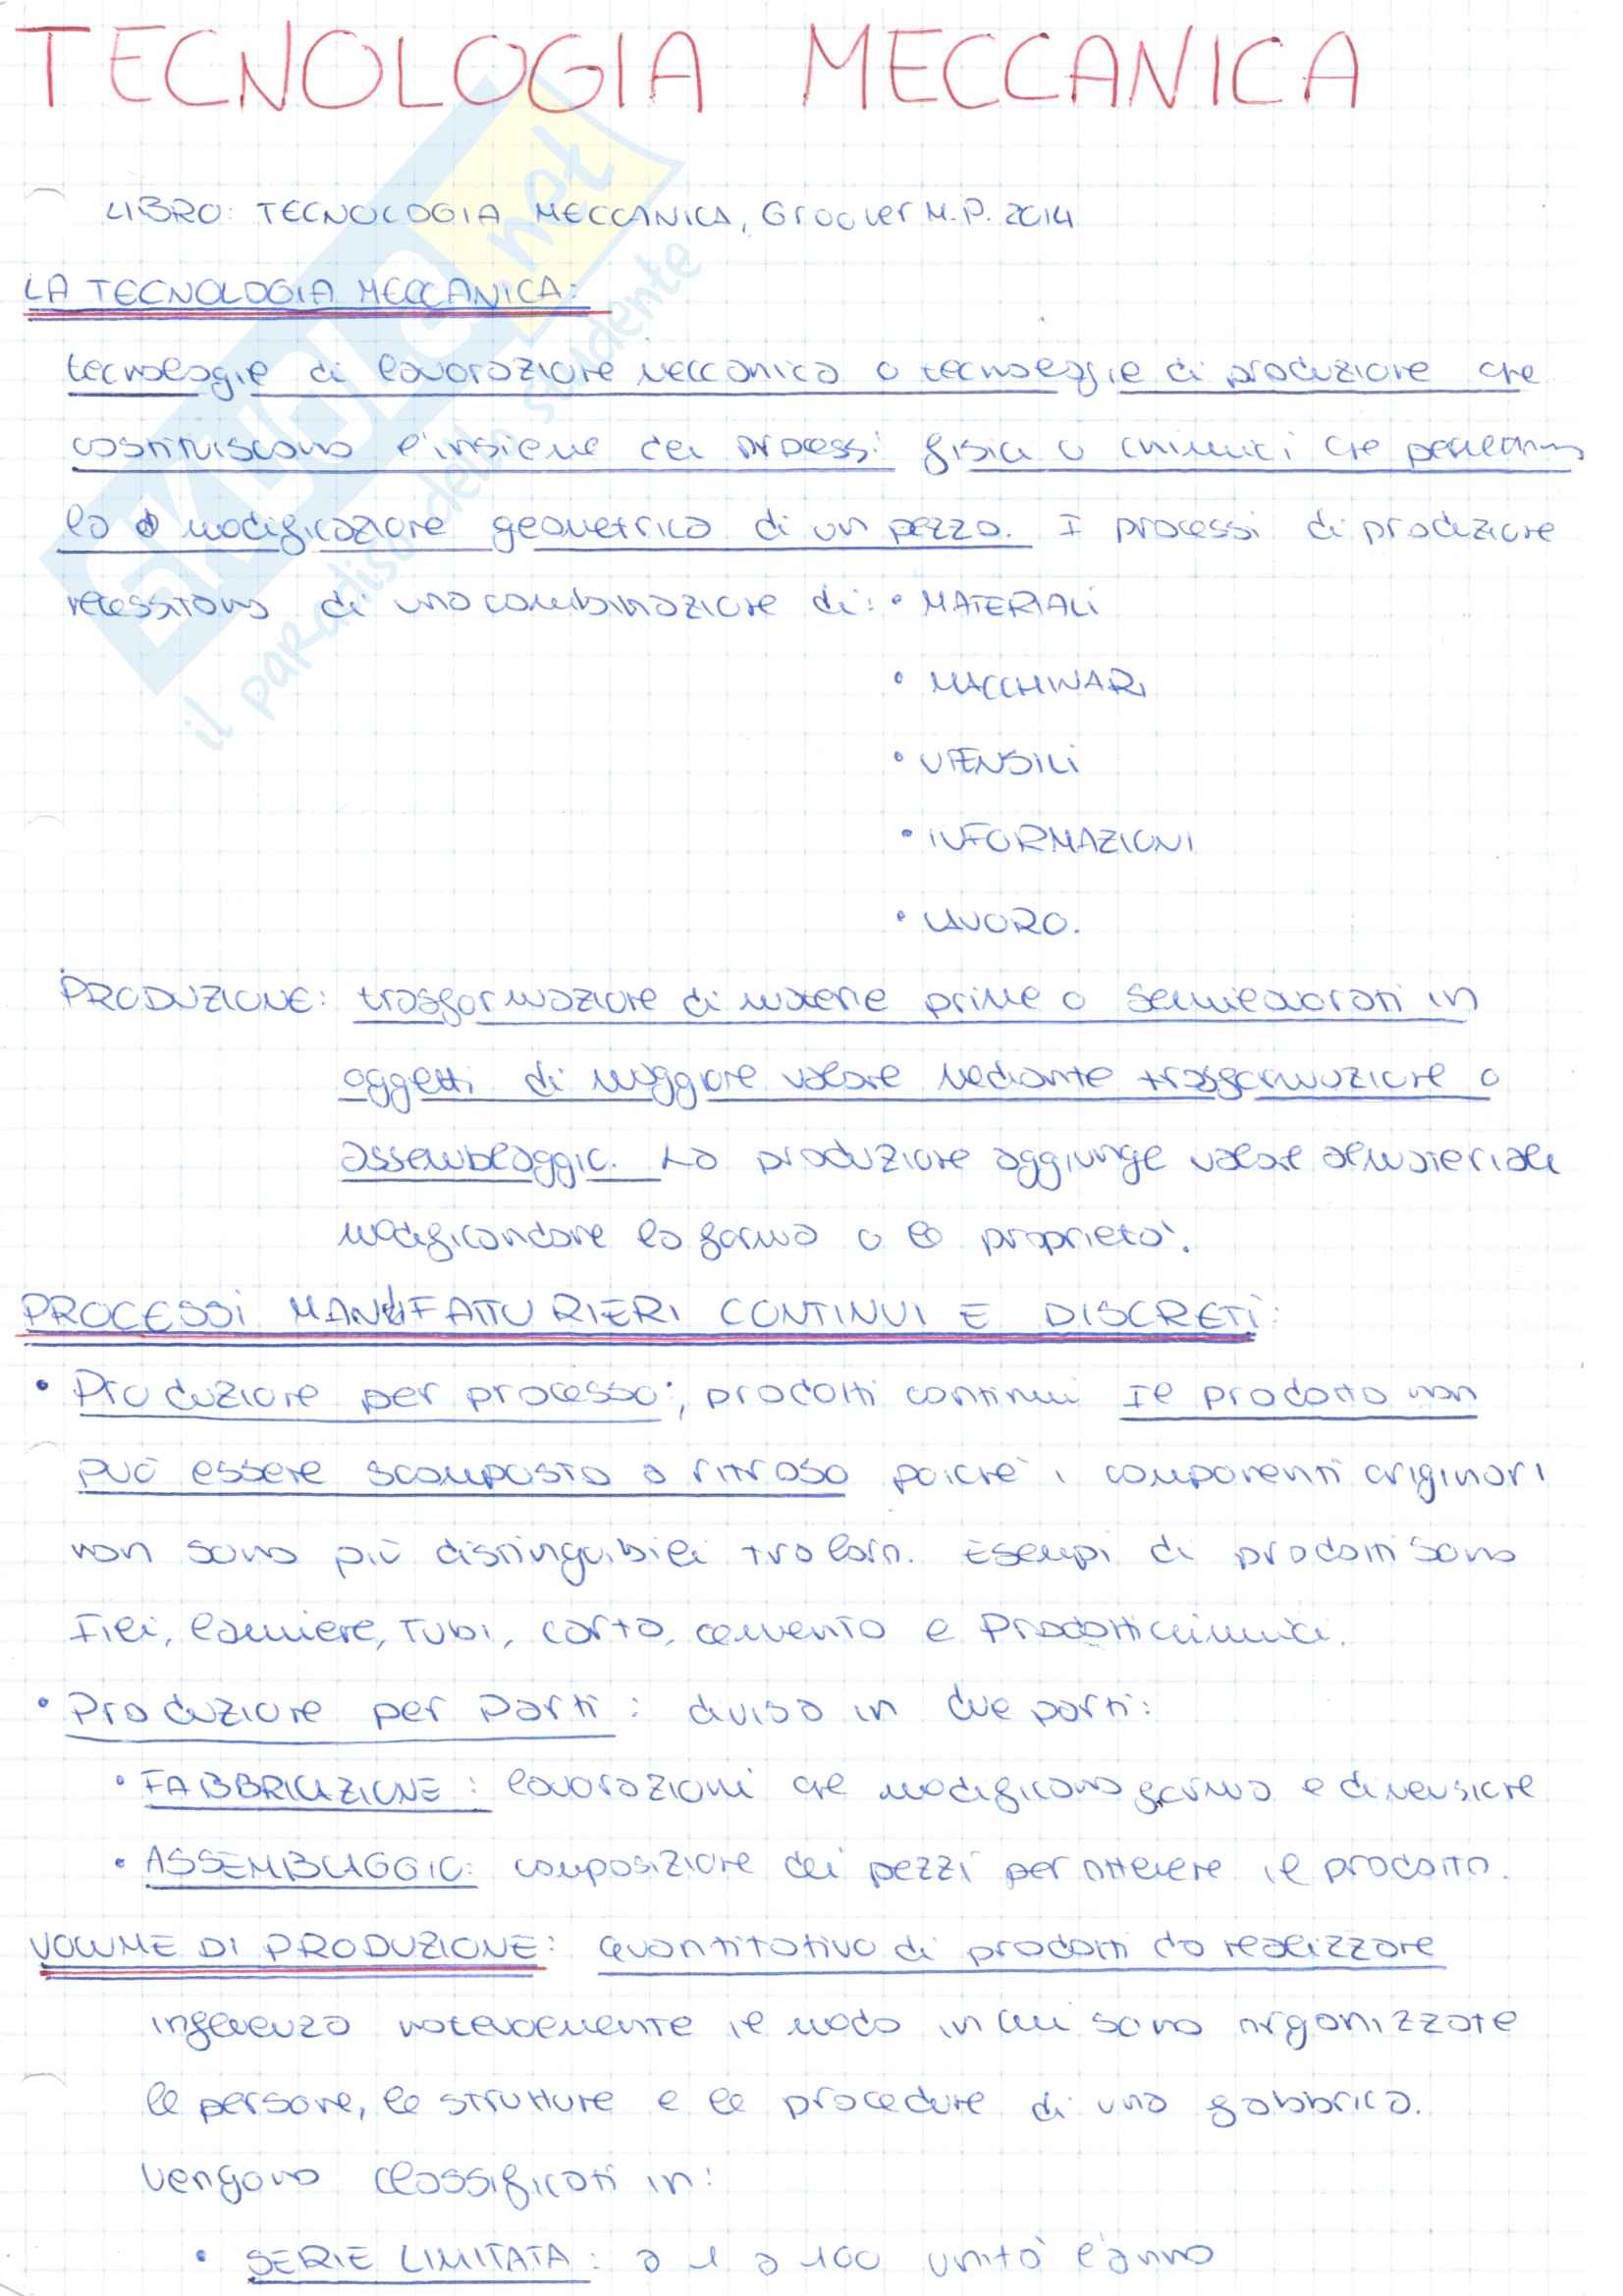 TECNOLOGIA MECCANICA
LIBRO: TECNOLOGIA MECCANICA, Groover M.P. 2014
LA TECNOLOGIA MECCANICA:
tecnologie di lavorazione meccanica o tecnologie di produzione che
costituiscono l'insieme dei processi fisici o chimici che permettono
la modificazione geometrica di un pezzo. I processi di produzione
necessitano di una combinazione di: • MATERIALI
• MACCHINARI
• UTENSILI
• INFORMAZIONI
• LAVORO.
PRODUZIONE: trasformazione di materie prime o semilavorati in
oggetti di maggiore valore mediante trasformazione o
assemblaggio. La produzione aggiunge valore al materiale
modificandone la forma o le proprietà.
PROCESSI MANIFATTURIERI CONTINUI E DISCRETI:
• Produzione per processo: prodotti continui Il prodotto non
può essere scomposto a ritroso poiché i componenti originari
non sono più distinguibili tra loro. Esempi di prodotti sono
Fili, lamiere, Tubi, carta, cemento e Prodotti chimici.
• Produzione per Parti: divisa in due parti:
• FABBRICAZIONE: lavorazioni che modificano forma e dimensione
• ASSEMBLAGGIO: composizione dei pezzi per ottenere il prodotto.
VOLUME DI PRODUZIONE: Quantitativo di prodotti da realizzare
influenza notevolmente il modo in cui sono organizzate
le persone, le strutture e le procedure di una fabbrica.
Vengono classificati in:
• SERIE LIMITATA: da 1 a 100 unità l'anno
SKUOLA.net
il paradiso dello studente